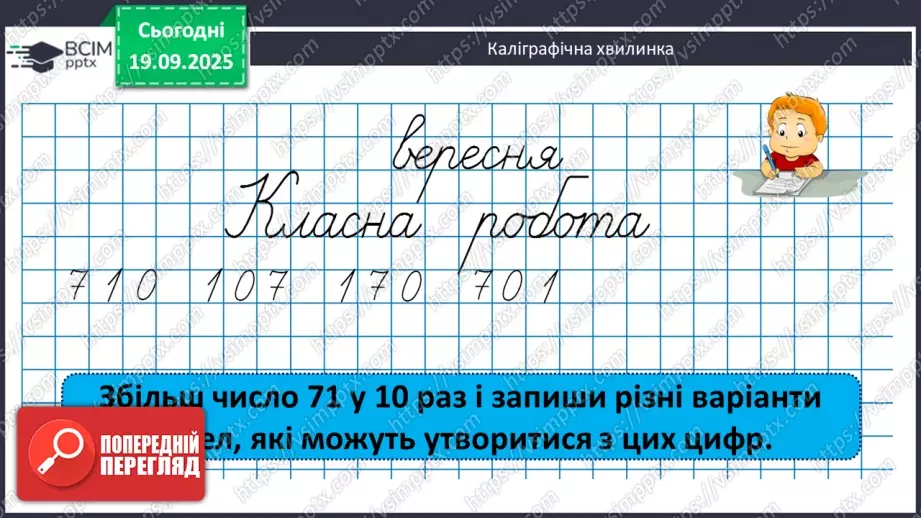 Сьогодні
19.09.2025
ВСІМ
pptx
Каліграфічна хвилинка
вересня
Класна робота
710 107 170 701
Збільш число 71 у 10 раз і запиши різні варіанти
ел, які можуть утворитися з цих цифр.
ПОПЕРЕДНІЙ
ПЕРЕГЛЯД
https://vsimpptx.com